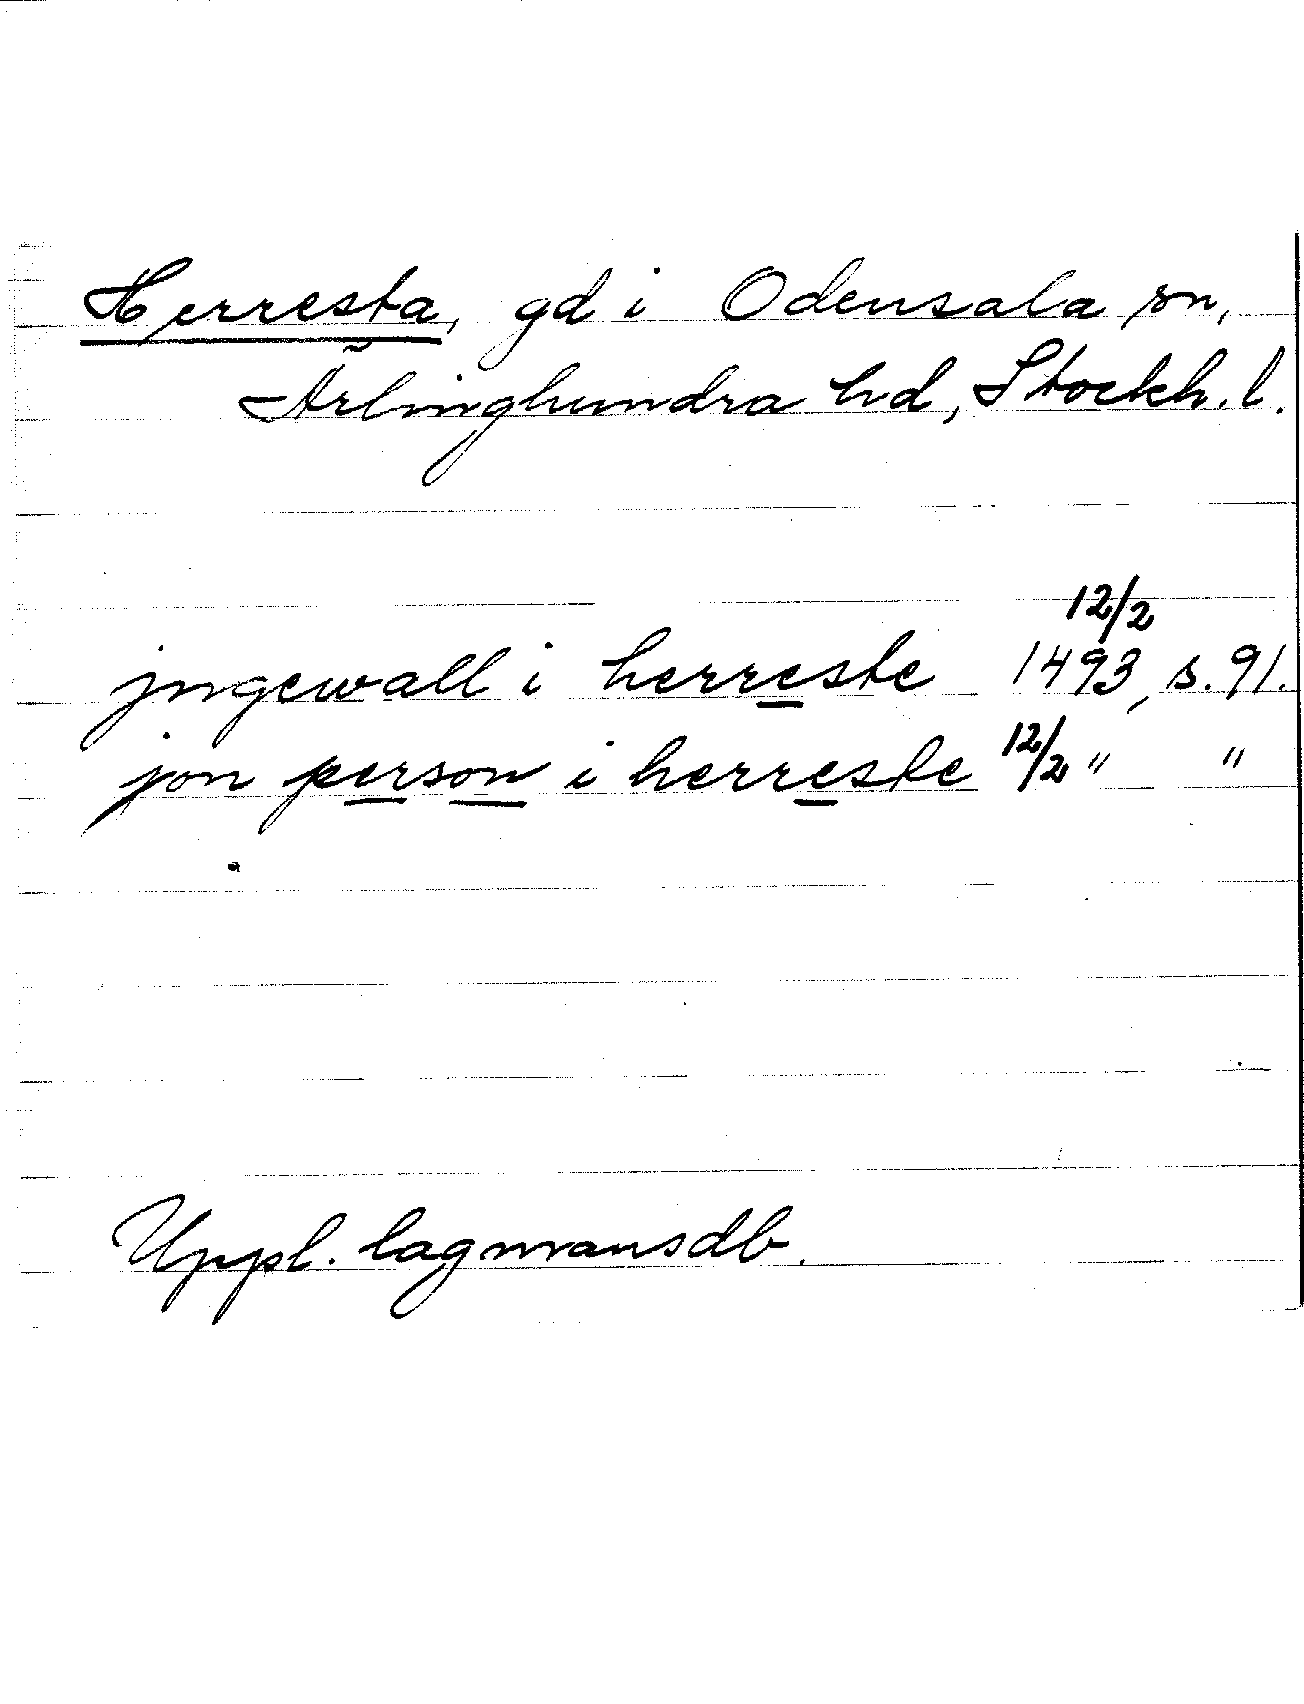 Herresta, gd i Odensala sn,
Ärlinghundra hd, Stockh. l.
12/2
jngewall i herreste 1493, s. 91.
jon person i herreste 12/2 " "
Uppl. lagmansdb.